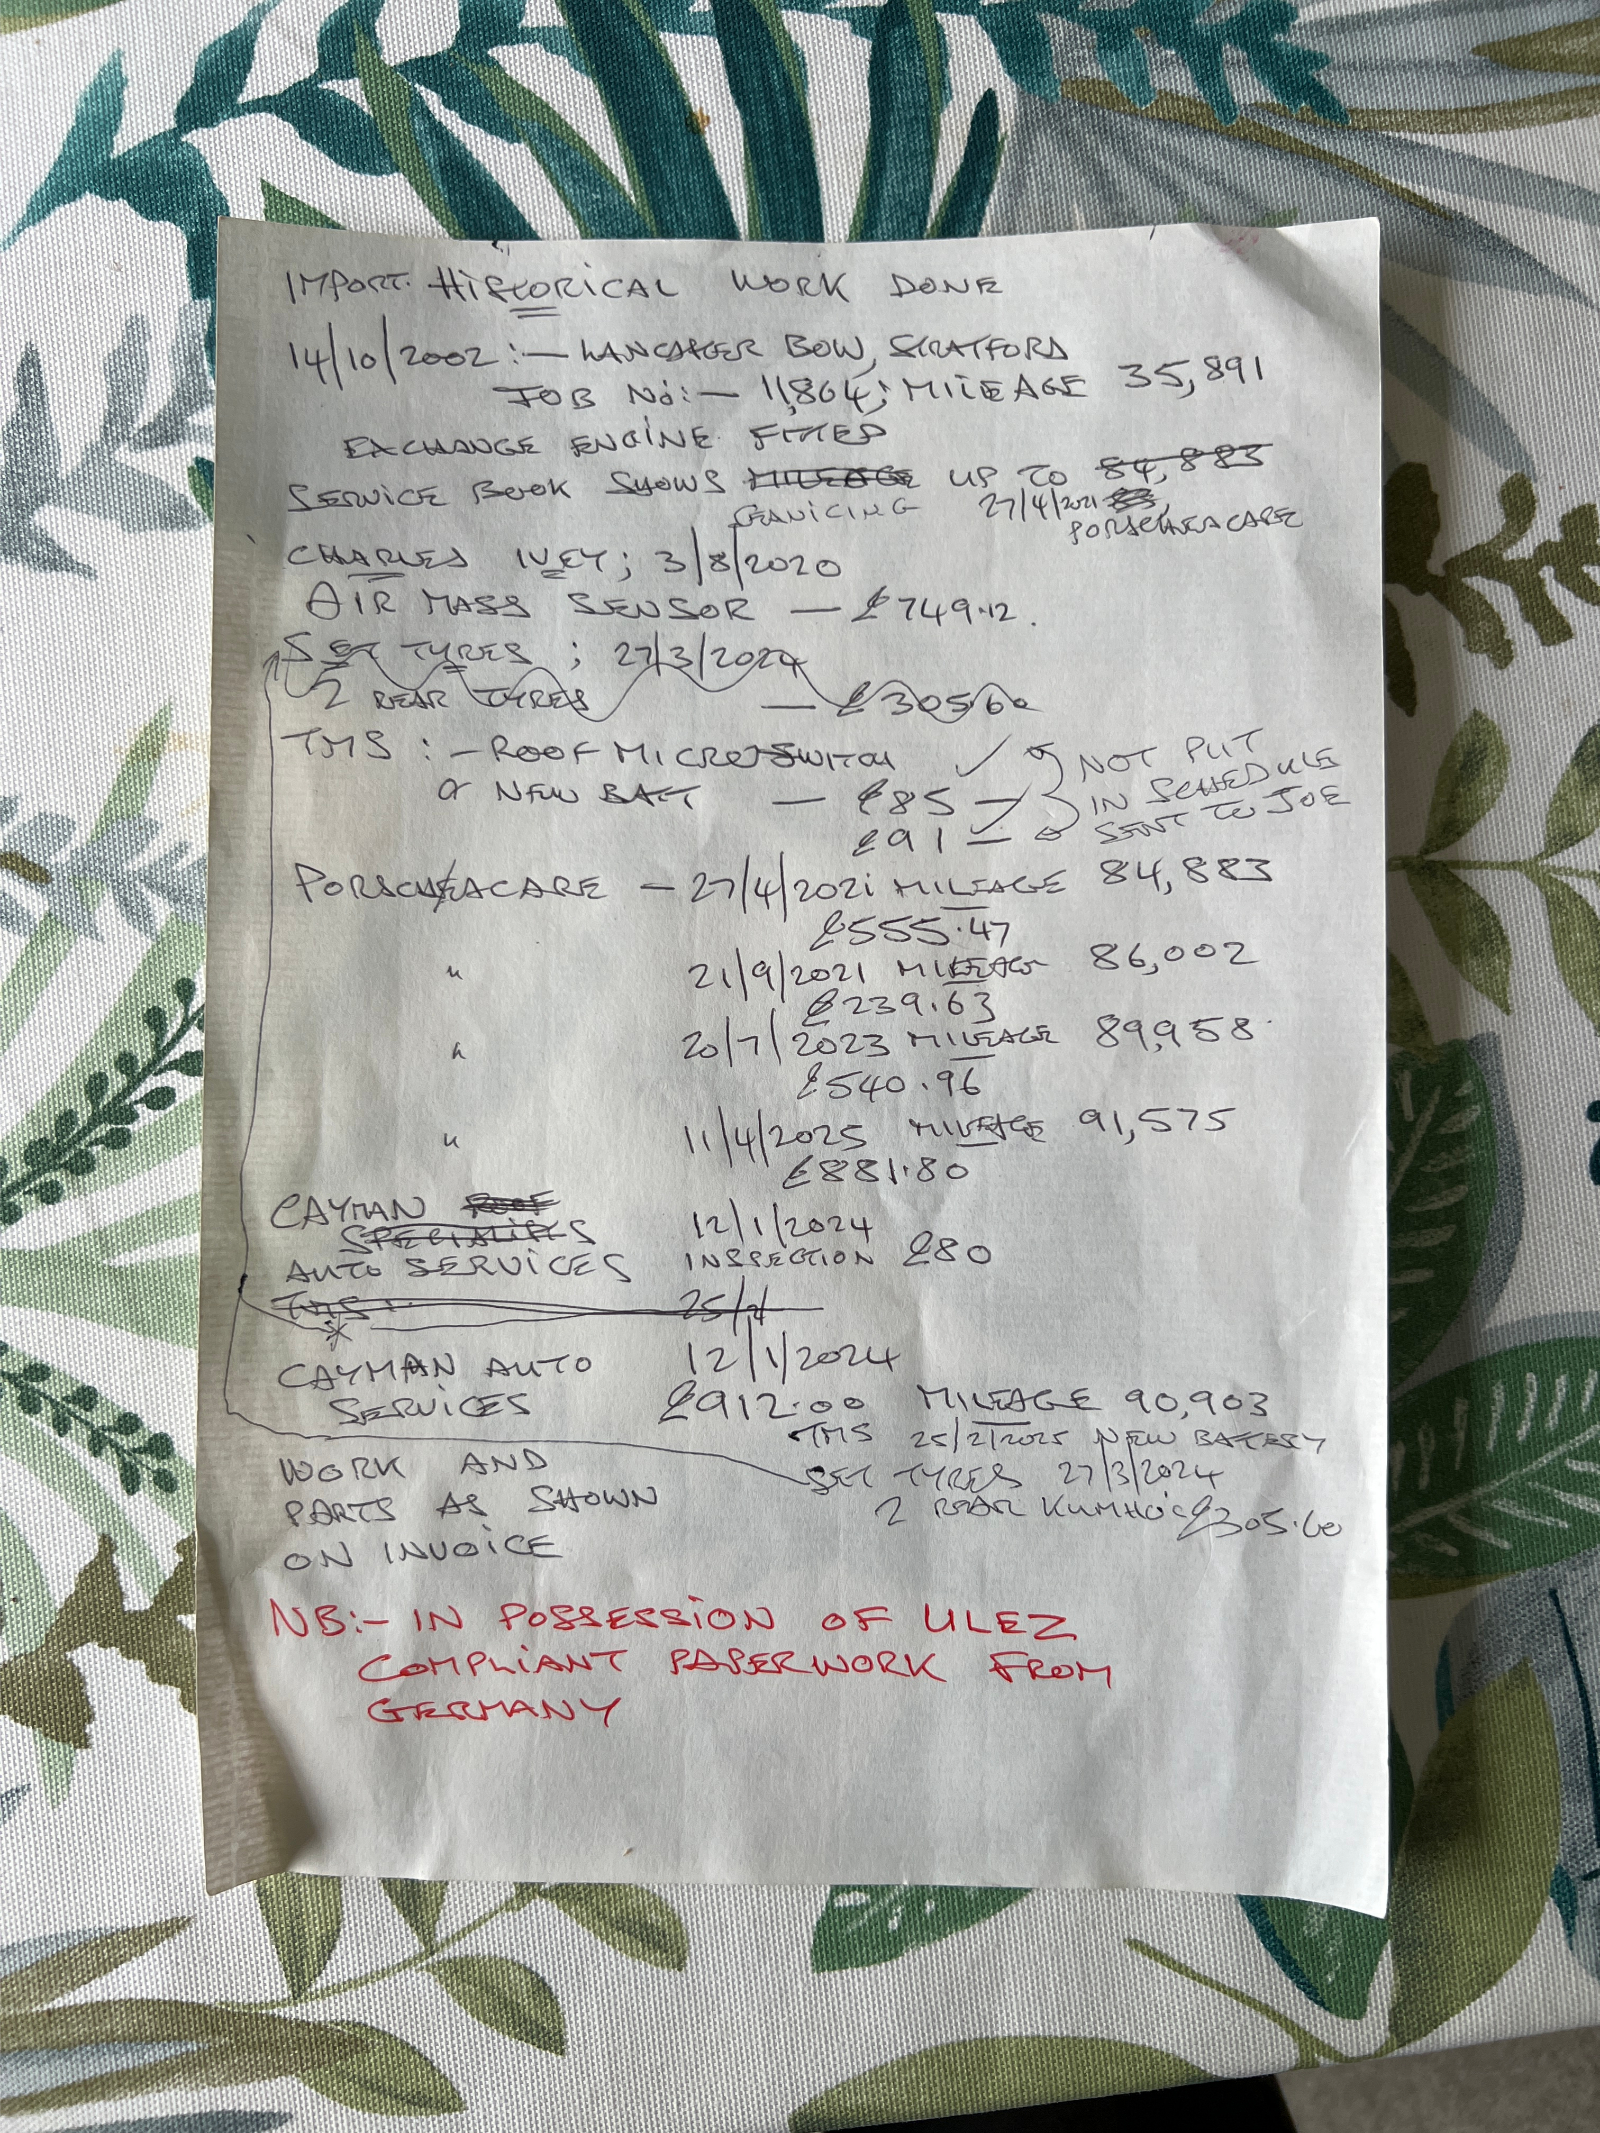 IMPORT. HISTORICAL WORK DONE
14/10/2002 :— LANCASTER BOW, STRATFORD
JOB No:— 11,864; MILEAGE 35,891
EXCHANGE ENGINE FITTED
SERVICE BOOK SHOWS MILEAGE UP TO 84,883
SERVICING 27/4/2021
PORSCHEACARE
CHARLES IVEY; 3/8/2020
AIR MASS SENSOR — £749.12.
SET TYRES ; 27/3/2024
2 REAR TYRES — £305.60
TMS :— ROOF MICRO SWITCH
& NEW BATT — £85 —
£91 —
NOT PUT
IN SCHEDULE
SENT TO JOE
PORSCHEACARE — 27/4/2021 MILEAGE 84,883
£555.47
" 21/9/2021 MILEAGE 86,002
£239.63
" 20/7/2023 MILEAGE 89,958
£540.96
" 11/4/2025 MILEAGE 91,575
£881.80
CAYMAN ROOF
SPECIALISTS 12/1/2024
AUTO SERVICES INSPECTION £80
TMS: 25/2/
CAYMAN AUTO 12/1/2024
SERVICES £912.00 MILEAGE 90,903
TMS 25/2/2025 NEW BATTERY
WORK AND SET TYRES 27/3/2024
PARTS AS SHOWN 2 REAR KUMHO £305.60
ON INVOICE
NB:- IN POSSESSION OF ULEZ
COMPLIANT PAPERWORK FROM
GERMANY